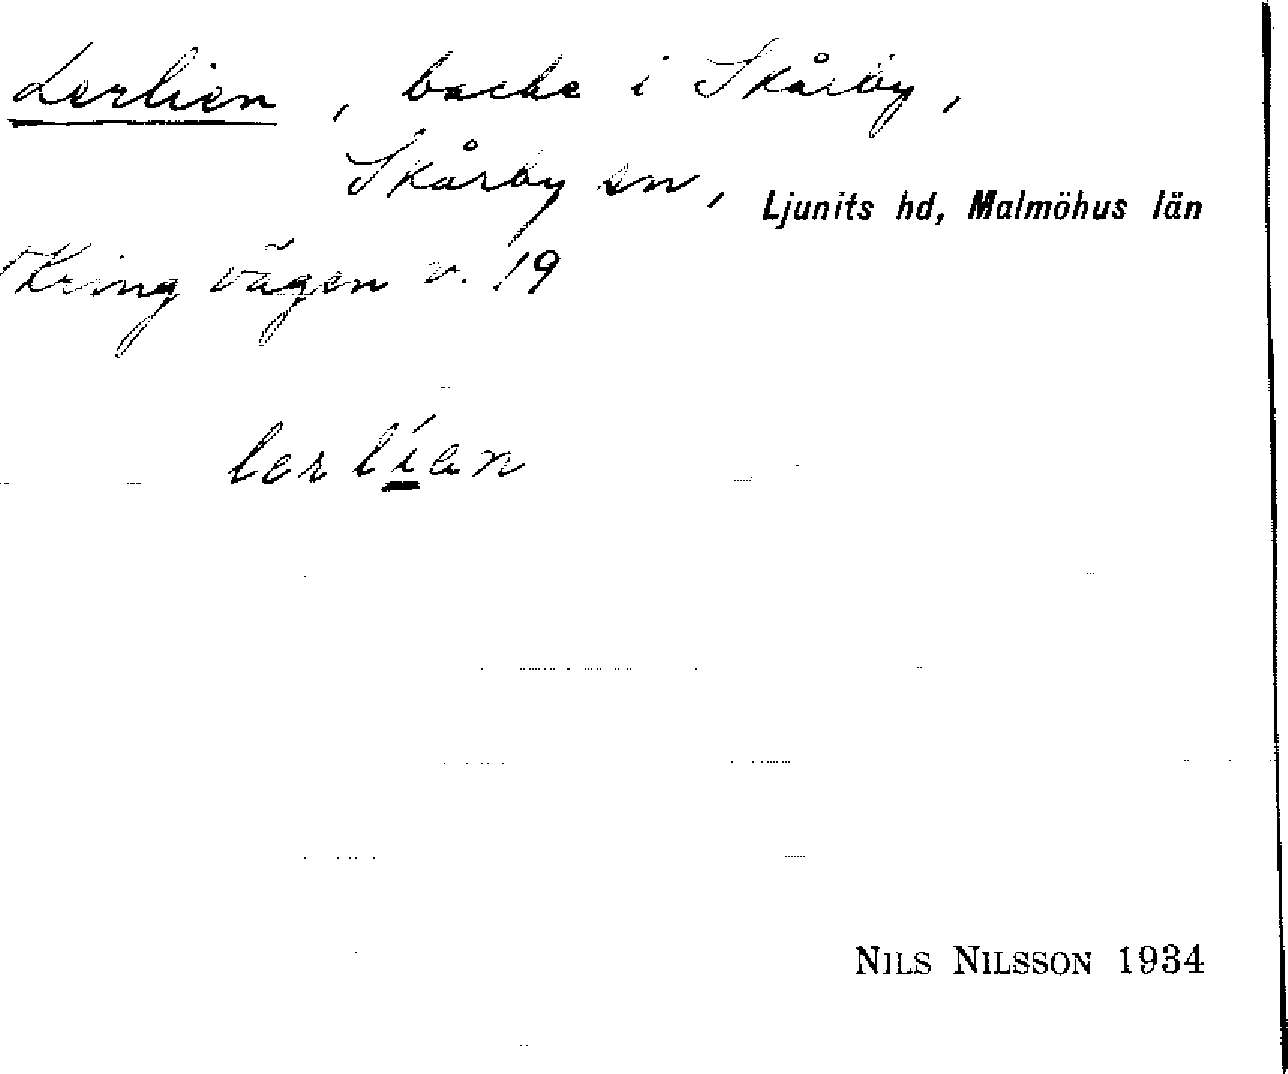 Lerlien, backe i Skårby,
Skårby sn, Ljunits hd, Malmöhus län
Kring vägen v. 19
lerlían
NILS NILSSON 1934